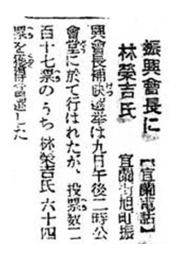 振興會長に
林榮吉氏
【宜蘭電話】
宜蘭街旭町振
興會長補缺選擧は九日午後二時公
會堂に於て行はれたが、投票數二
百十七票のうち林榮吉氏六十四
票を獲得當選した